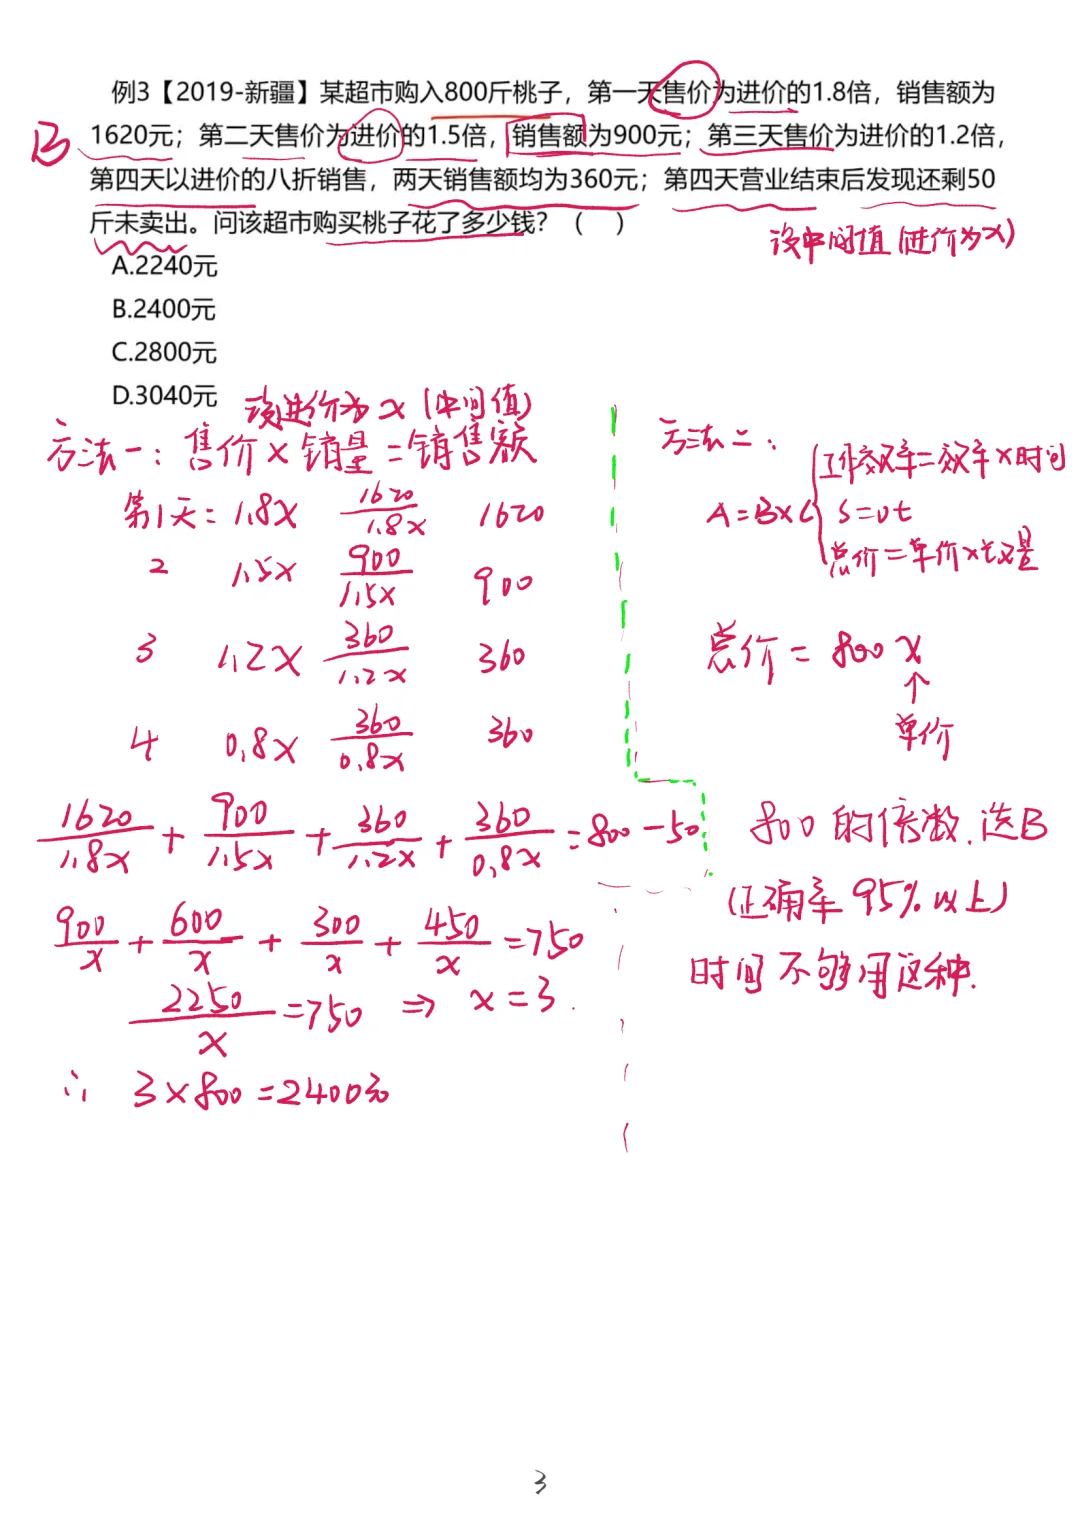 例3【2019-新疆】某超市购入800斤桃子，第一天售价为进价的1.8倍，销售额为
1620元；第二天售价为进价的1.5倍，销售额为900元；第三天售价为进价的1.2倍，
第四天以进价的八折销售，两天销售额均为360元；第四天营业结束后发现还剩50
斤未卖出。问该超市购买桃子花了多少钱？（ ）
B
设中间值(进价为x)
A.2240元
B.2400元
C.2800元
D.3040元
设进价为x(中间值)
方法一：售价×销量=销售额
第1天：1.8x 1620/1.8x 1620
2 1.5x 900/1.5x 900
3 1.2x 360/1.2x 360
4 0.8x 360/0.8x 360
1620/1.8x + 900/1.5x + 360/1.2x + 360/0.8x = 800-50
900/x + 600/x + 300/x + 450/x = 750
2250/x = 750 ⇒ x=3.
∴ 3×800=2400元
方法二：
工作效率=效率×时间
A=B×C S=vt
总价=单价×数量
总价=800x
↑
单价
800的倍数.选B
(正确率95%以上)
时间不够用这种.
3